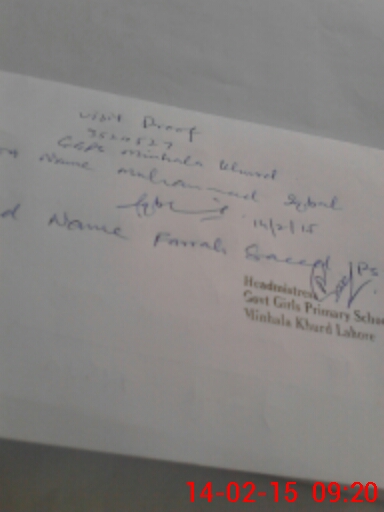 visit Proof
3520527
GGPS Minhala Khurd
Name Muhammad Iqbal
14/2/15
d Name Farrah Saeed
Headmistress
Govt Girls Primary Schoo
Minhala Khurd Lahore
14-02-15 09:20